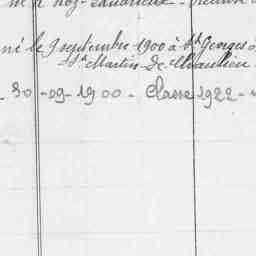 né le 9 septembre 1900 à St Georges
St Martin-de-Chaulieu
30-09-1900 - Classe 1922 -